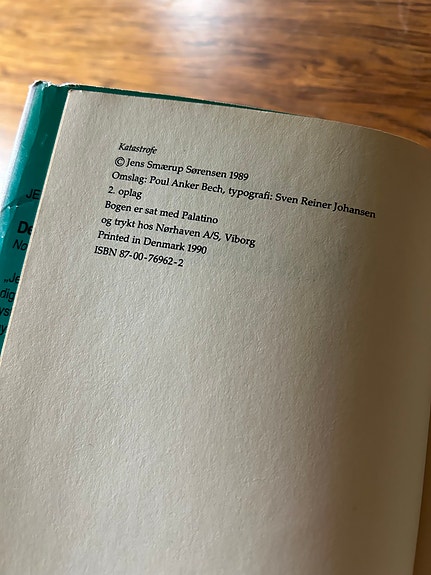 Katastrofe
© Jens Smærup Sørensen 1989
Omslag: Poul Anker Bech, typografi: Sven Reiner Johansen
2. oplag
Bogen er sat med Palatino
og trykt hos Nørhaven A/S, Viborg
Printed in Denmark 1990
ISBN 87-00-76962-2